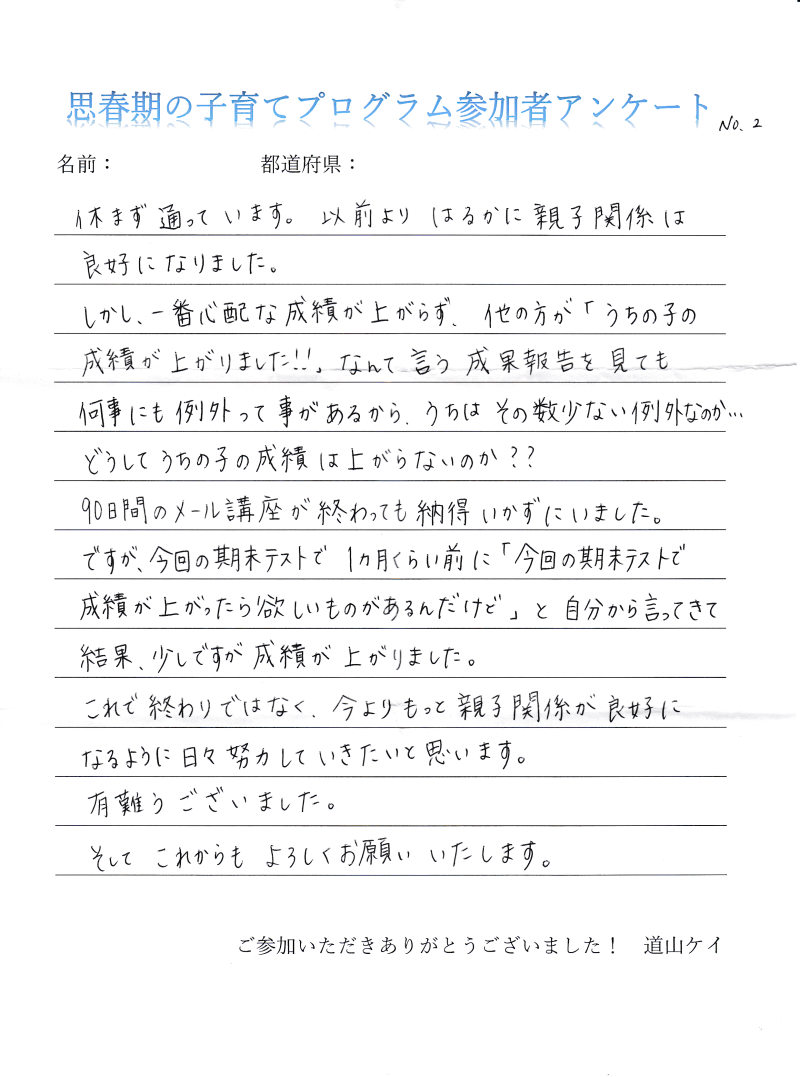 思春期の子育てプログラム参加者アンケート
No. 2
名前： 都道府県：
休まず通っています。以前よりはるかに親子関係は
良好になりました。
しかし、一番心配な成績が上がらず、他の方が「うちの子の
成績が上がりました!!」なんて言う成果報告を見ても
何事にも例外って事があるから、うちはその数少ない例外なのか…
どうしてうちの子の成績は上がらないのか??
90日間のメール講座が終わっても納得いかずにいました。
ですが、今回の期末テストで1カ月くらい前に「今回の期末テストで
成績が上がったら欲しいものがあるんだけど」と自分から言ってきて
結果、少しですが成績が上がりました。
これで終わりではなく、今よりもっと親子関係が良好に
なるように日々努力していきたいと思います。
有難うございました。
そしてこれからもよろしくお願いいたします。
ご参加いただきありがとうございました！ 道山ケイ